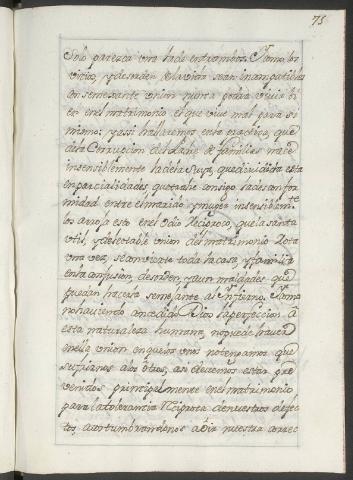 75
Solo paresca una hacia entrambos. Y como los
vicios, y desorden de la vida sean incompatibles
con semexante union nunca podrá vivir bi
en en el matrimonio el que vive mal para si
mismo; y assi hallaremos en la practica, que
de la Corrupcion del de familias nace
insensiblemente ha de la suya, que dividida esta
en parcialidades, que trahe consigo la desconfor
midad entre el marido, y muger insensiblemte
los arroja esto en el Odio Reciproco, que la santa
util, y deleitable union del matrimonio Rota
una vez, se convierte toda la casa, y familia
en la confusion, desorden, y aun maldades que
puedan hacerla semejante al Infierno. Y como
no haviendo concedido Dios la perfeccion á
esta naturaleza humana, no puede haver
en ella union en que los unos no tengamos que
sufrirnos a los otros, asi devemos estar pre
venidos principalmente en el matrimonio
para la tolerancia Reciproca de nuestros defec
tos acostumbrandonos a oir nuestra correc